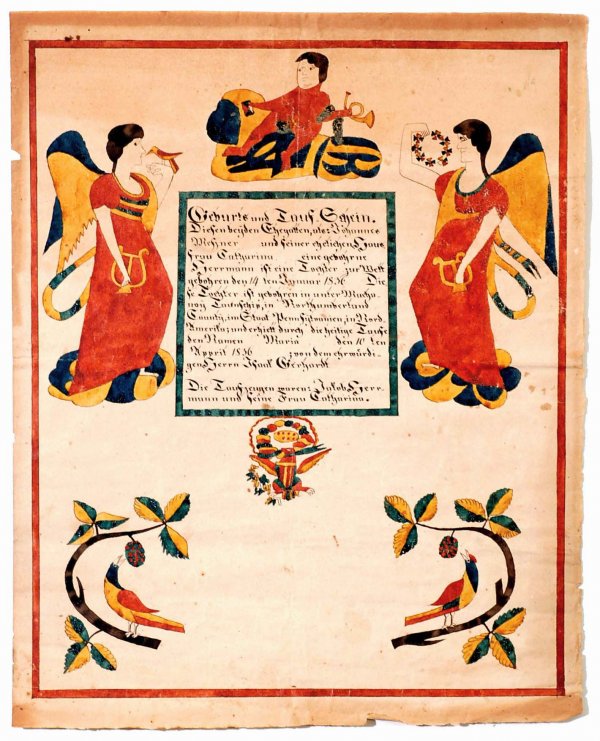 Geburts und Tauf Schein.
Diesen beyden Ehegatten, als: Johannes
Meßner und seiner ehelichen Haus,
frau Catharina eine gebohrne
Herrmann ist eine Tochter zur Welt
gebohren den 14 ten Januar 1836 Die
se Tochter ist gebohren in unter Macha,
noy Taunschip, in Northumberland
Caunty, im Staat Pennsylvanien, in Nord
Amerika; und erhielt durch die heilige Taufe
den Namen Maria den 10 ten
Appril 1836 ; von dem ehrwürdi,
gen Herrn Isaak Gerhardt
Die Taufzeugen waren: Jakob Herr,
mann und seine Frau Catharina.